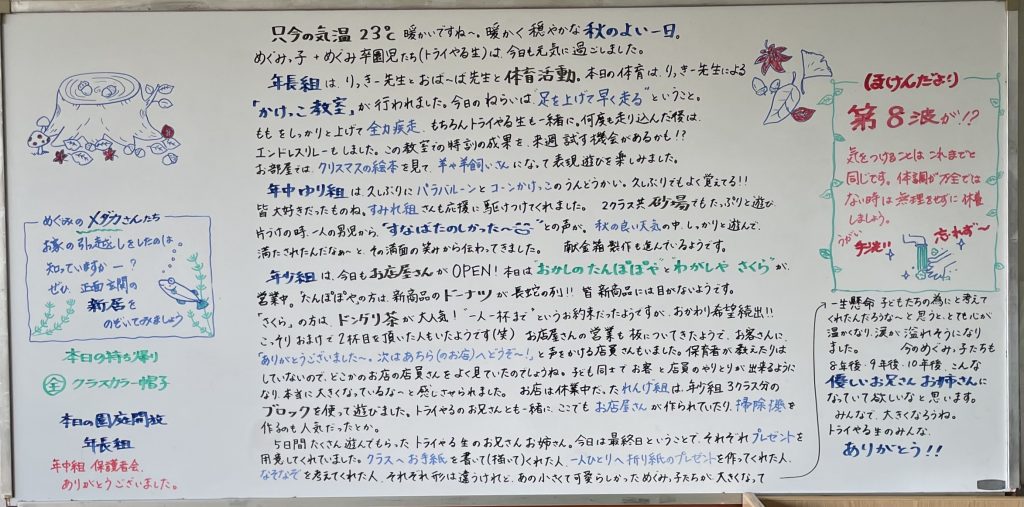 只今の気温 23℃ 暖かいですね〜。暖かく穏やかな秋のよい一日。
めぐみっ子+めぐみ卒園児たち(トライやる生)は、今日も元気に過ごしました。
年長組は、りっきー先生とおば〜ば先生と体育活動。本日の体育は、りっきー先生による
「かけっこ教室」が行われました。今日のねらいは"足を上げて早く走る"ということ。
ももをしっかりと上げて全力疾走、もちろんトライやる生も一緒に。何度も走り込んだ後は、
エンドレスリレーもしました。この教室での特訓の成果を、来週試す機会があるかも!?
お部屋では、クリスマスの絵本を見て、羊や羊飼いさんになって表現遊びを楽しみました。
年中ゆり組は久しぶりにパラバルーンとコーンかけっこのうんどうかい。久しぶりでもよく覚えてる!!
皆大好きだったものね。すみれ組さんも応援に駆けつけてくれました。 2クラス共砂場でもたっぷりと遊び
片づけの時、一人の男児から、"すなばたのしかった〜"との声が。秋の良い天気の中、しっかりと遊んで、
満たされたんだなぁ〜と、その満面の笑みから伝わってきました。 献金箱製作も進んでいるようです。
年少組は、今日もお店屋さんがOPEN!本日は"おかしのたんぽぽや"と"わがしや さくら"が、
営業中。"たんぽぽや"の方は、新商品のドーナツが長蛇の列!!皆新商品には目がないようです。
「さくら」の方は、ドングリ茶が大人気!"一人一杯まで"というお約束だったようですが、おかわり希望続出!!
こっそりおまけで2杯目を頂いた人もいたようです(笑) お店屋さんの営業も板についてきたようで、お客さんに、
「ありがとうございました〜。次はあちら(のお店)へどうぞ〜!」と声をかける店員さんもいました。保育者が教えたりは
していないので、どこかのお店の店員さんをよく見ていたのでしょうね。子ども同士でお客と店員のやりとりが出来るように
なり、本当に大きくなっているな〜と感じさせられました。 お店は休業中だったれんげ組は、年少組3クラス分の
ブロックを使って遊びました。トライやるのお兄さんとも一緒に、ここでもお店屋さんが作られていたり、掃除機を
作るのも人気だったとか。
5日間たくさん遊んでもらったトライやる生のお兄さんお姉さん。今日は最終日ということで、それぞれプレゼントを
用意してくれていました。クラスへお手紙を書いて(描いて)くれた人、一人ひとりへ折り紙のプレゼントを作ってくれた人、
なぞなぞを考えてくれた人、それぞれ形は違うけれど、あの小さくて可愛らしかっためぐみっ子たちが、大きくなって
一生懸命子どもたちの為にと考えて
くれたんだろうな〜と思うと、とても心が
温かくなり、涙が溢れそうになり
ました。 今のめぐみっ子たちも
8年後・9年後・10年後、こんな
優しいお兄さんお姉さんに
なっていて欲しいなと思います。
みんなで、大きくなろうね。
トライやる生のみんな、
ありがとう!!
めぐみのメダカさんたち
お家の引っ越しをしたのは。
知っていますかー?
ぜひ、正面玄関の
新居を
のぞいてみましょう
本日の持ち帰り
全 クラスカラー帽子
本日の園庭開放
年長組
年中組 保護者会、
ありがとうございました。
ほけんだより
第8波が!?
気をつけることは これまでと
同じです。体調が万全では
ない時は無理をせずに休養
しましょう。
うがい
手洗い
忘れず〜